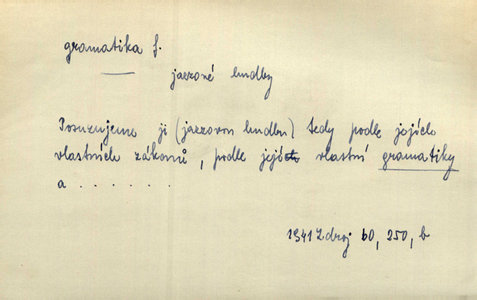 gramatika f.
jazzové hudby
Posuzujeme ji (jazzovou hudbu) tedy podle jejích
vlastních zákonů, podle její vlastní gramatiky
a . . . . . . .
1941 Zdroj 60, 250, b